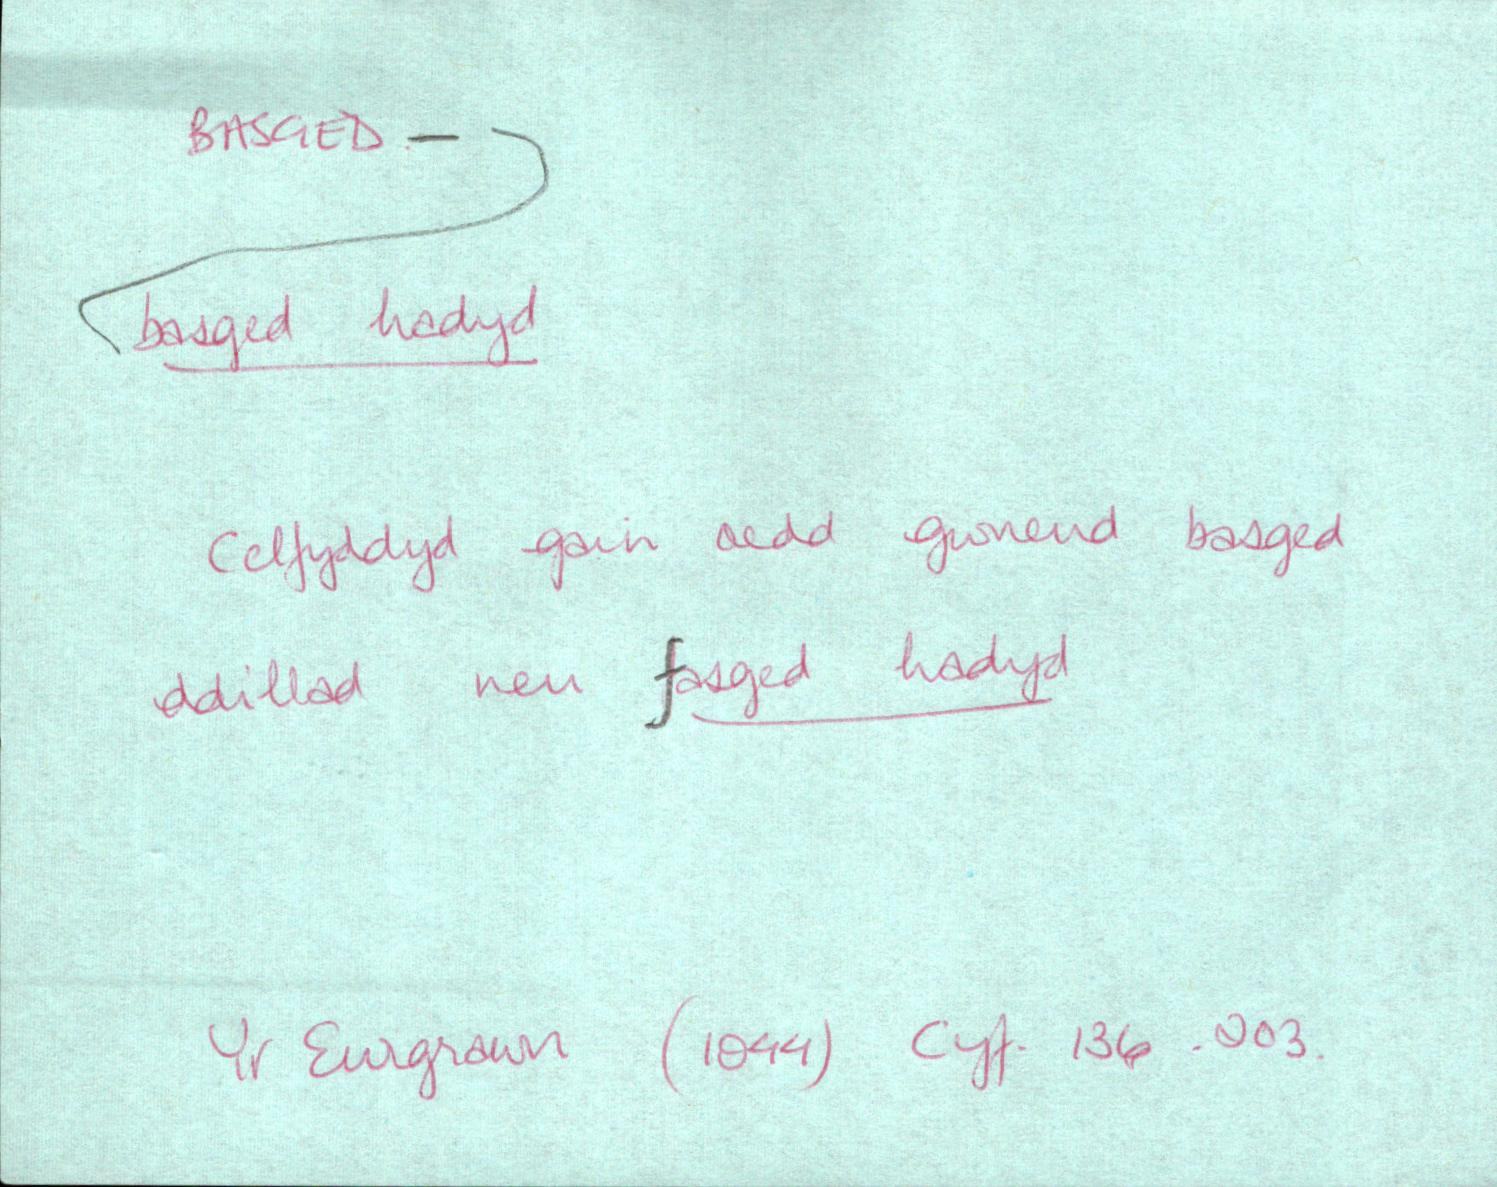 BASGED. —
basged hadyd
Celfyddyd gain oedd gwneud basged
ddillad neu fasged hadyd
Yr Eurgrawn (1944) Cyf. 136. 203.